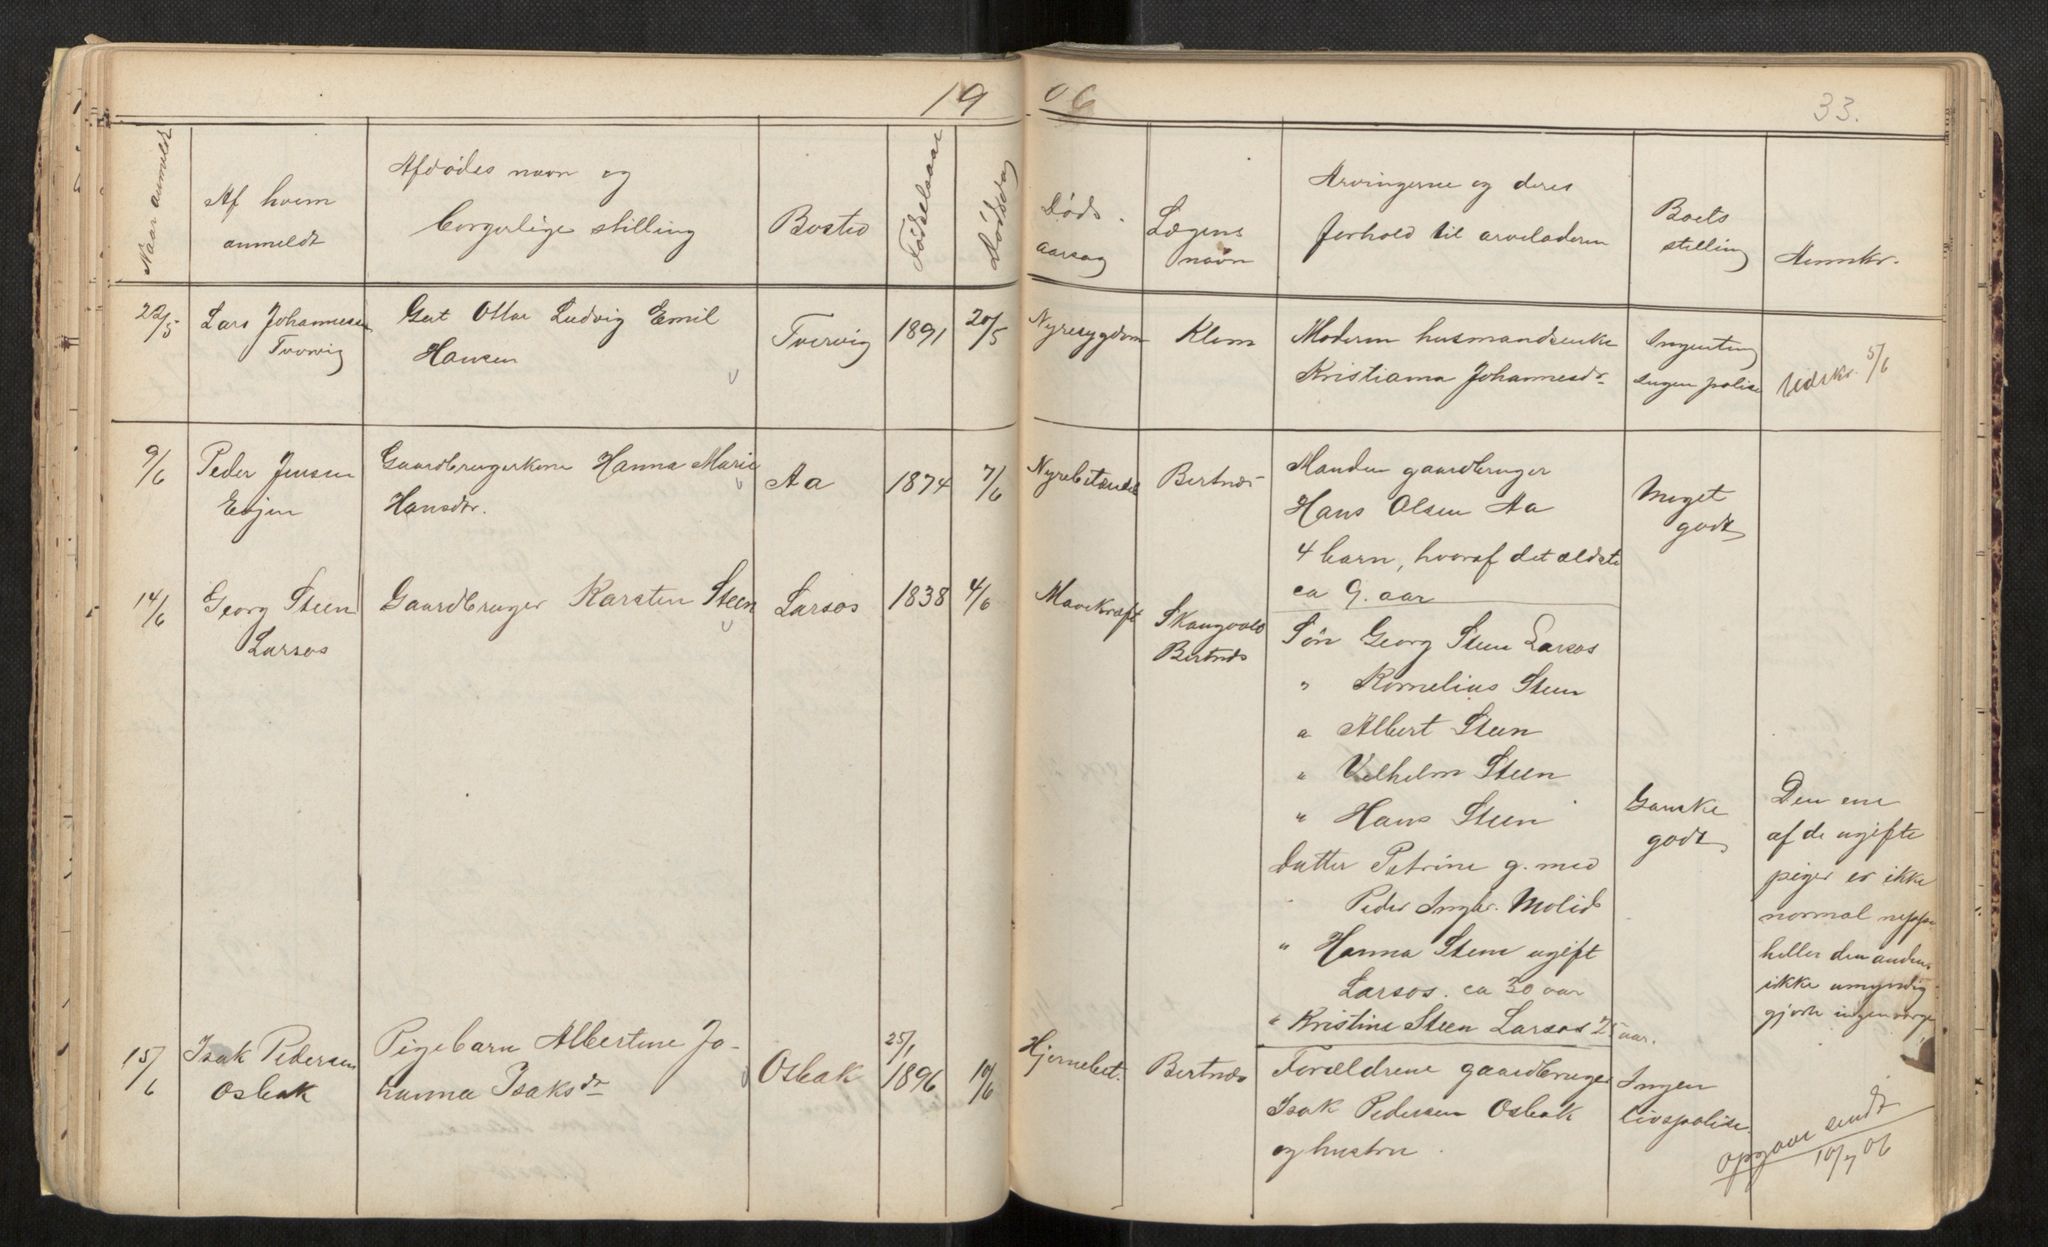 19 06 33.
Naar anmeldt
Af hvem
anmeldt
Afdødes navn og
borgerlige stilling
Bosted
Fødselsaar
Dødsdag
Døds-
aarsag
Lægens
navn
Arvingerne og deres
forhold til arveladeren
Boets
stilling
Anmkr.
22/5
Lars Johannesen
Tvervig
Gut Ottar Ludvig Emil
Hansen
Tvervig
1891
20/5
Nyresygdom
Klem
Moderen husmandsenke
Kristiana Johannesdr
Ingenting
Ingen polise
Udskr. 5/6
9/6
Peder Jensen
Evjen
Gaardbrugerkone Hanna Marie
Hansdtr.
Aa
1874
7/6
Nyrebetændel
Bertnæs
Manden gaardbruger
Hans Olsen Aa
4 barn, hvoraf det ældste
ca 9. aar
Meget
godt
14/6
Georg Steen
Larsos
Gaardbruger Karsten Steen
Larsos
1838
4/6
Mavekræft
Skaugvold
Bertnæs
Søn Georg Steen Larsos
" Kornelius Steen
" Albert Steen
" Vilhelm Steen
" Hans Steen
Datter Petrine g. med
Peder Ingbr. Molid
" Hanna Steen ugift
Larsos. ca 30 aar
" Kristine Steen Larsos 25 aar.
Ganske
godt
Den ene
af de ugifte
piger er ikke
normal neppe
heller den anden
ikke umyndig
gjorte ingen værge
15/6
Isak Pedersen
Osbak
Pigebarn Albertine Jo-
hanna Isaksdr
Osbak
25/1
1896
10/6
Hjernebet.
Bertnæs
Forældrene gaardbruger
Isak Pedersen Osbak
og hustru.
Ingen
livspolise.
Opgave sendt
10/7 06